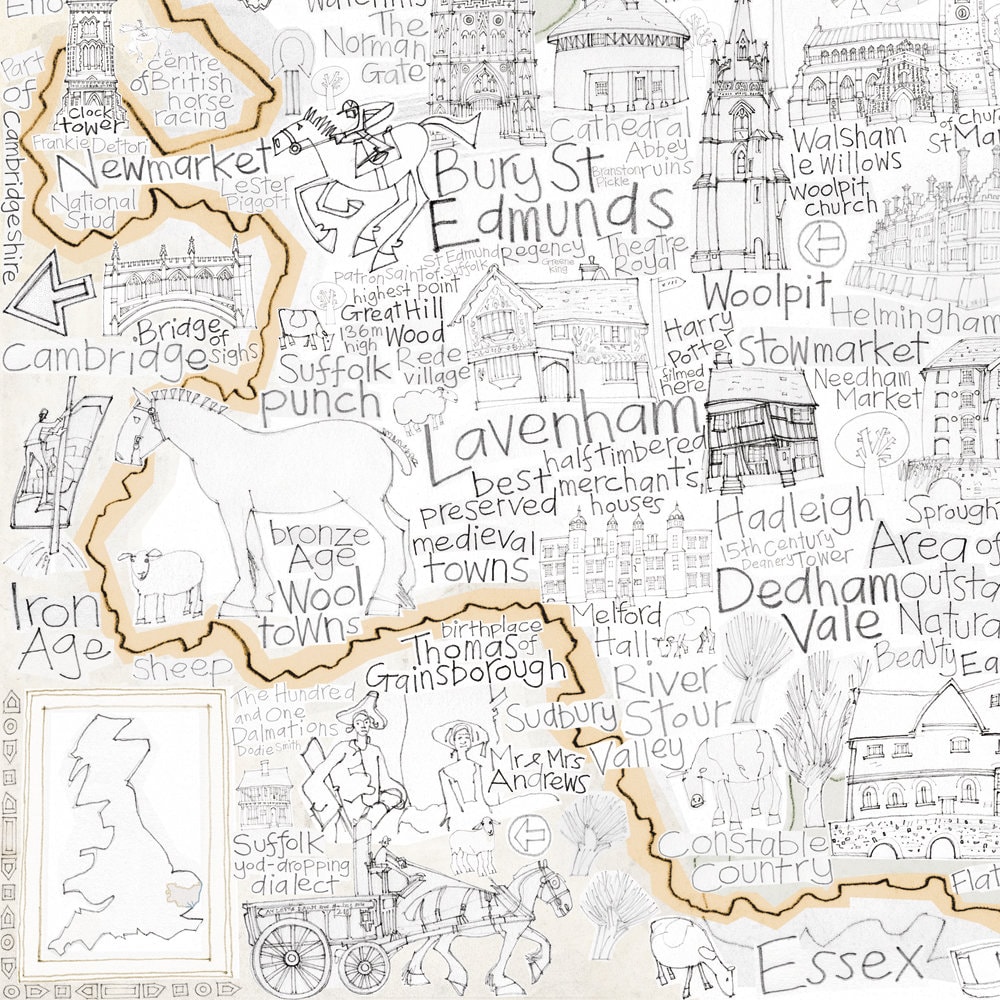 The
Norman
Gate
Part
of
Cambridgeshire
centre
of British
horse
racing
Clock
tower
Frankie Dettori
Newmarket
National
Stud
Lester
Piggott
Bury St
Edmunds
Cathedral
Abbey
ruins
Branston
Pickle
Walsham
le Willows
Woolpit
church
of
St
patron saint of
St Edmund
Suffolk
Regency
Greene
King
Theatre
Royal
highest point
Great Hill
Wood
136m
high
Rede
village
Bridge
of
sighs
Cambridge
Suffolk
punch
Woolpit
Helmingham
Harry
Potter
filmed
here
Stowmarket
Needham
Market
Lavenham
half timbered
merchant's
houses
best
preserved
medieval
towns
bronze
Age
Wool
towns
Iron
Age
sheep
Hadleigh
15th Century
Deanery Tower
Area of
Natura
Beauty
Dedham
Vale
Melford
Hall
birthplace
of
Thomas
Gainsborough
Sudbury
River
Stour
Valley
Mr & Mrs
Andrews
The Hundred
and One
Dalmations
Dodie Smith
Suffolk
yod-dropping
dialect
Constable
Country
Flat
Essex